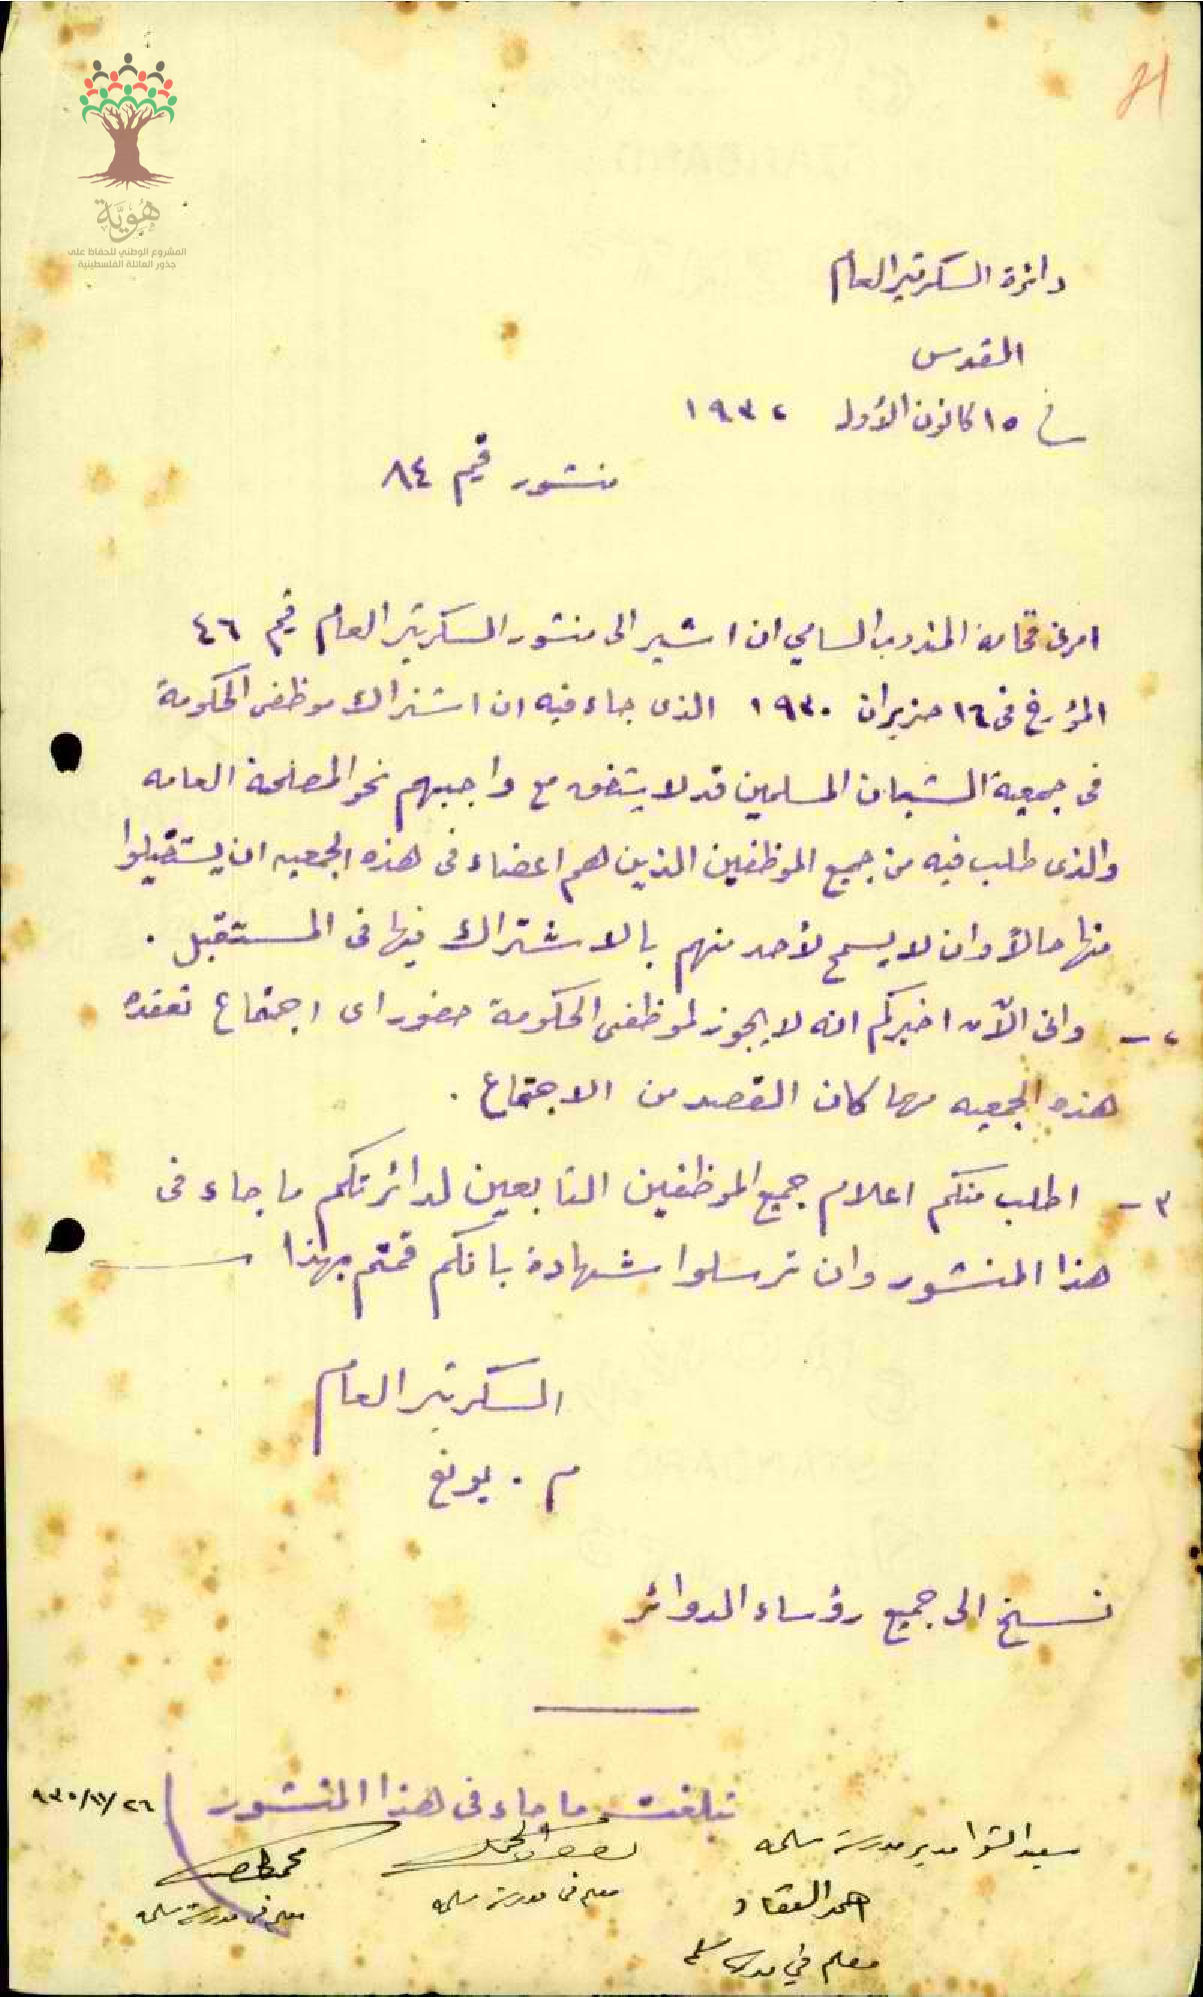 هُوِيَّة
المشروع الوطني للحفاظ على
جذور العائلة الفلسطينية
دائرة السكرتير العام
القدس
في ١٥ كانون الأول ١٩٣٢
منشور رقم ٨٤
امرني فخامة المندوب السامي ان اشير الى منشور السكرتير العام رقم ٤٦
المؤرخ في ١٦ حزيران ١٩٣٠ الذي جاء فيه ان اشتراك موظفي الحكومة
في جمعية الشبان المسلمين قد لا يتفق مع واجبهم نحو المصلحة العامه
والذي طلب فيه من جميع الموظفين الذين هم اعضاء في هذه الجمعيه ان يستقيلوا
منها حالاً وان لا يسمح لأحد منهم بالاشتراك فيها في المستقبل .
٢- واني الآن اخبركم انه لا يجوز لموظفي الحكومة حضور اى اجتماع تعقده
هذه الجمعيه مهما كان القصد من الاجتماع .
٣- اطلب منكم اعلام جميع الموظفين التابعين لدائرتكم ما جاء في
هذا المنشور وان ترسلوا شهادة بانكم قمتم بهذا
السكرتير العام
م . يونغ
نسخ الى جميع رؤساء الدوائر
تبلغت ما جاء في هذا المنشور
مدير مدرسة سلمه
معلم في مدرسة سلمه
معلم في مدرسة سلمه
احمد العقاد
معلم في مدرسة سلمه